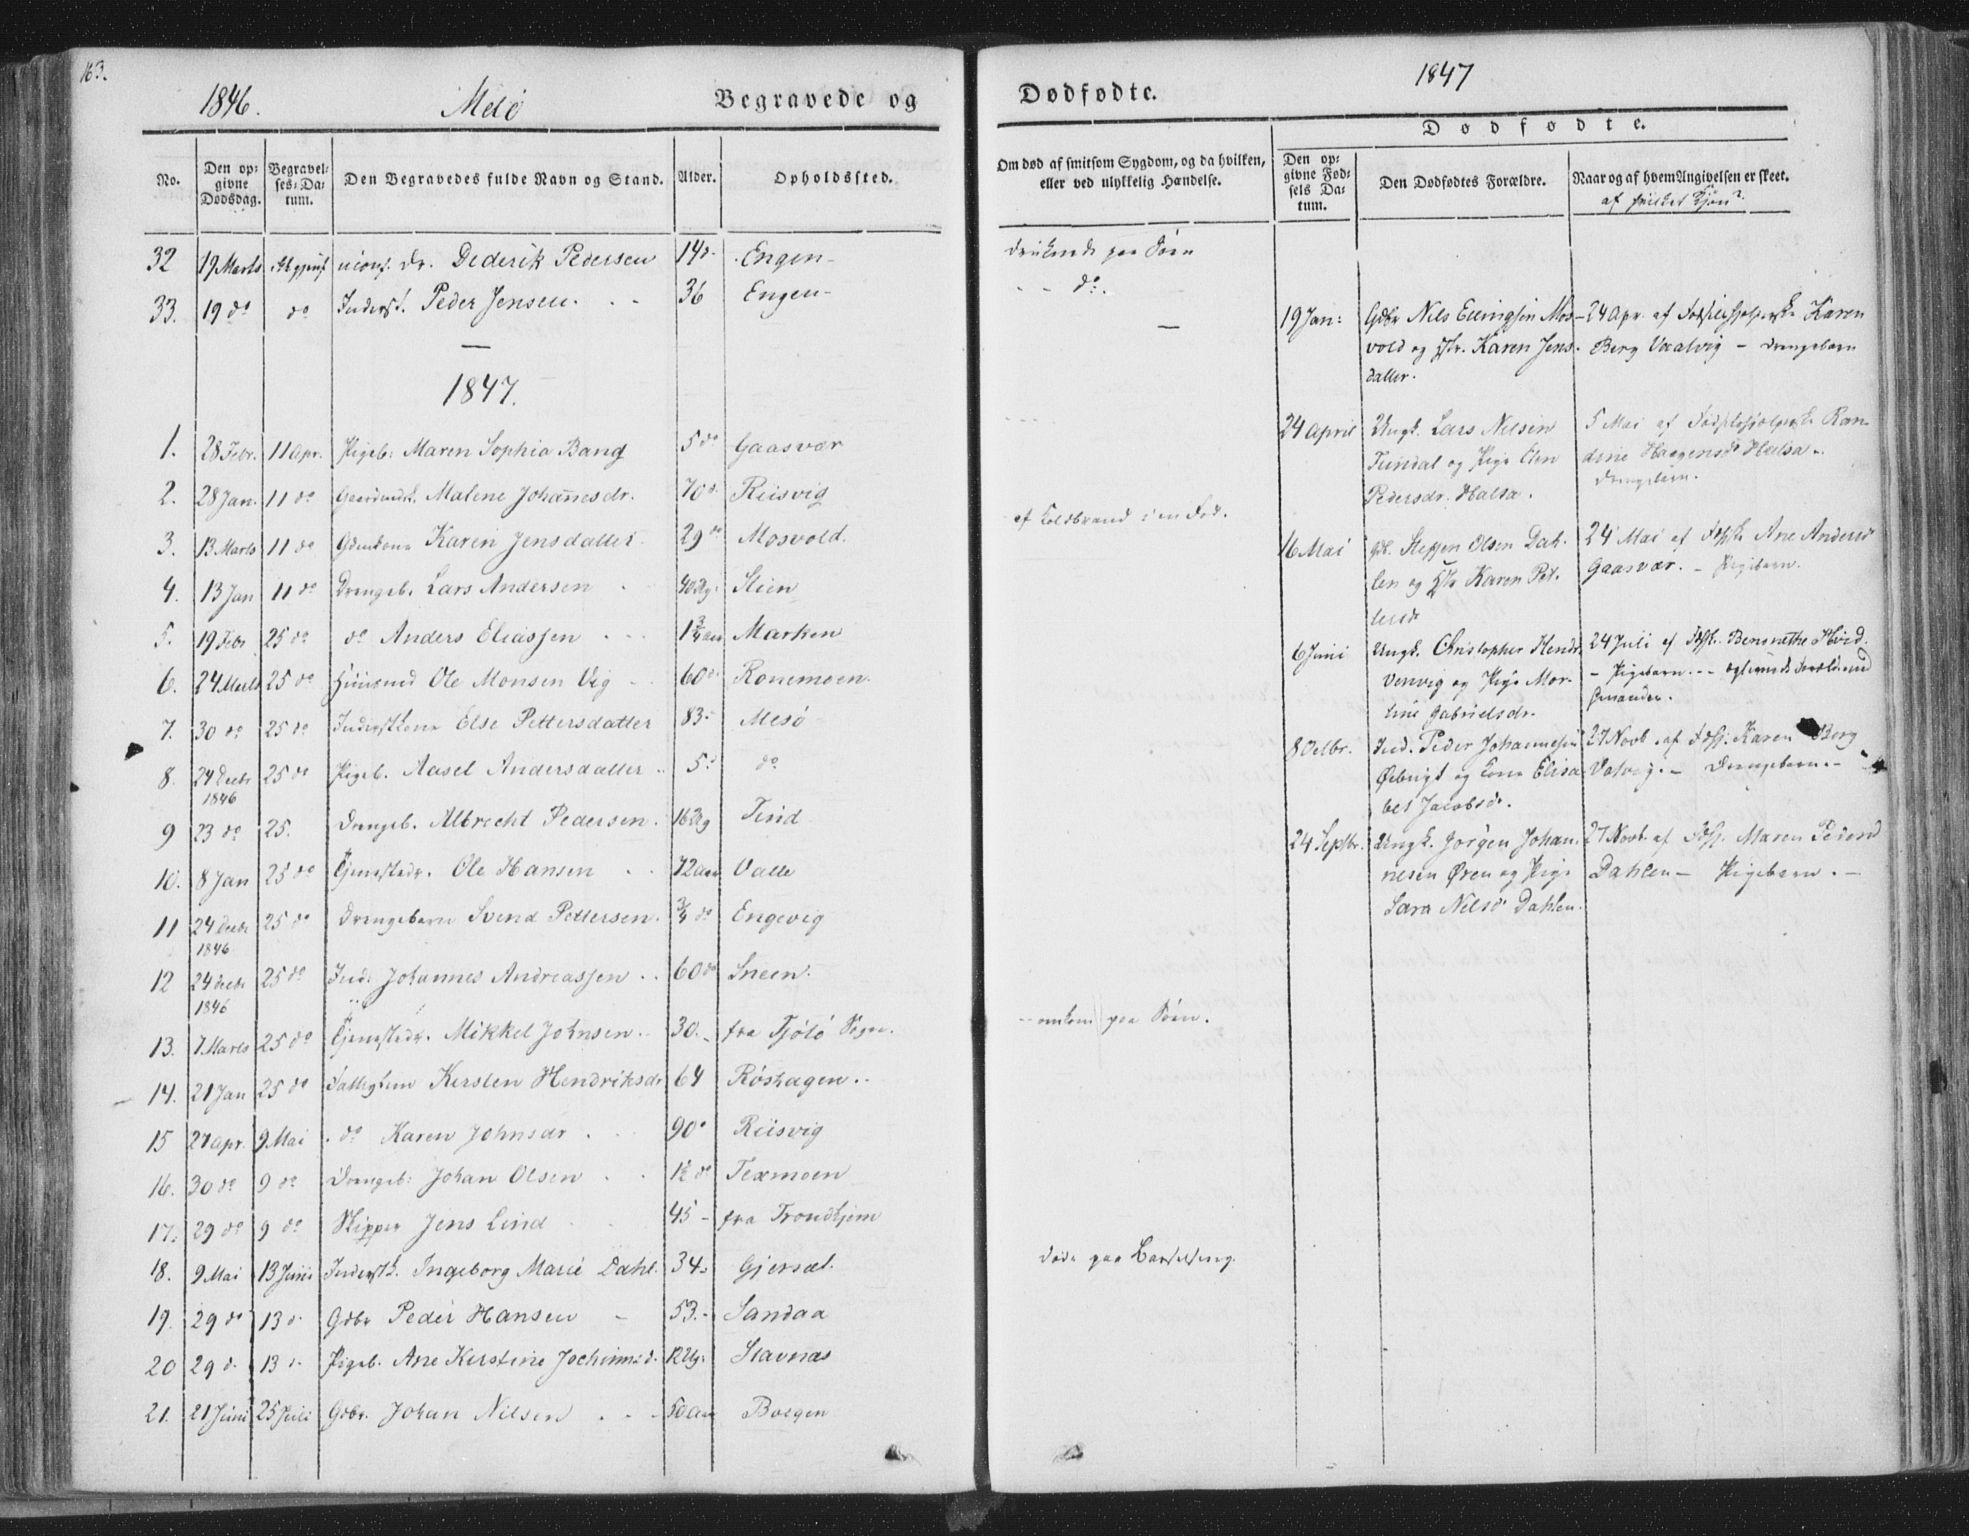 163.
1846. Melö Begravede og
No. Den opgivne Dødsdag. Begravelses-Datum. Den Begravedes fulde Navn og Stand. Alder. Opholdssted.
32 19 Marts Dr. Diderik Pedersen 14 d. Engen
33. 19 do do Inderst. Peder Jensen. 36 Engen
1847.
1. 28 Febr. 11 Apr. Pigeb. Maren Sophia Bang 5 do Gaasvær
2. 28 Jan. 11 do Malene Johannesdr. 70 d. Riisvig
3. 13 Marts 11 do Karen Jensdatter 29 do Mosvold.
4. 13 Jan 11 do Drengeb. Lars Andersen 40 Stien
5. 19 Febr 25 do do Anders Eliassen 1 3/4 aar Marken
6. 24 Marts 25 do Huusmd Ole Monsen Vig 60 d. Ronemoen.
7. 30 do 25 do Inderstkone Else Pettersdatter 83 Mesö
8. 24 Decbr 1846 25 do Pigeb. Aasel Andersdatter 5 do
9 23 do 25. Drengeb. Albrecht Pedersen. 16 Tind
10. 8 Jan 25 do Tjenestedr. Ole Hansen 72 aar Valle
11 24 Decbr 1846 25 do Drengebarn Svend Pettersen. 3/4 do Engevig
12 24 Decbr 1846 25 do Ind. Johannes Andreassen 60 do Sneen.
13. 7 Marts 25 do Tjenestedr. Mikkel Johnsen 30. fra Tjötö Sogn.
14. 21 Jan 25 do Kersten Hendriksdr 64 Röshagen
15 27 apr. 9 Mai do Karen Johnsdr 90 Riisvig
16. 30 do 9 do Drengeb. Johan Olsen 1 1/2 do Texmoen
17. 29 do 9 do Skipper Jens Lind 45 fra Trondhjem
18. 9 Mai 13 Juni Inderstk. Ingeborg Marie Dahl. 34 Gjersæt
19. 29 do 13 d. Gdbr Peder Hansen 53. Sandaa
20 29 d. 13 Pigeb. Ane Kirstine Jochimsd. 12 Stavnæs
21. 21 Juni 25 Juli Gdbr. Johan Nilsen 50 Aar Borgen
1847
Dødfødte.
Om død af smitsom Sygdom, og da hvilken, eller ved ulykkelig Hændelse.
Dødfødte.
Den opgivne Fødsels Datum. Den Dødfødtes Forældre. Naar og af hvem Angivelsen er skeet.
af hvilket Kjön?
druknede paa Söen
do.
af Koldbrand i en Fod.
omkom paa Söen.
døde paa Barselseng.
19 Jan: Gdbr Nils Ellingsen Mos-
vold og Karen Jens-
datter.
24 Apr. af Fødselshjelperske Karen
Berg Vaalvig – Drengebarn
24 April Ungk. Lars Nilsen
Tundal og Pige Elen
Pedersdr. Halsa.
5 Mai af Fødselshjelperske Ran-
dine Haagensdr Halsa –
Drengebarn.
16 Mai Steffen Olsen Dah-
len og Karen Pet-
24 Mai af Ane Andersd
Gaasvær. – Pigebarn.
6 Juni Ungk. Christopher Hendr.
Venvig og Pige Mar-
tine Gabrielsdr.
24 Juli af
– Pigebarn. –
8 Octbr. Ind. Peder Johannesen
og Kone Elisa-
bet Jacobsdr.
27 Novb. af Karen Berg
Valvig. – Drengebarn. –
24 Septbr. Ungk. Jørgen Johan-
nesen Øren og Pige
Sara Nilsdr Dahlen.
27 Novb. af Maren Pedersd
Dahlen – Pigebarn. –